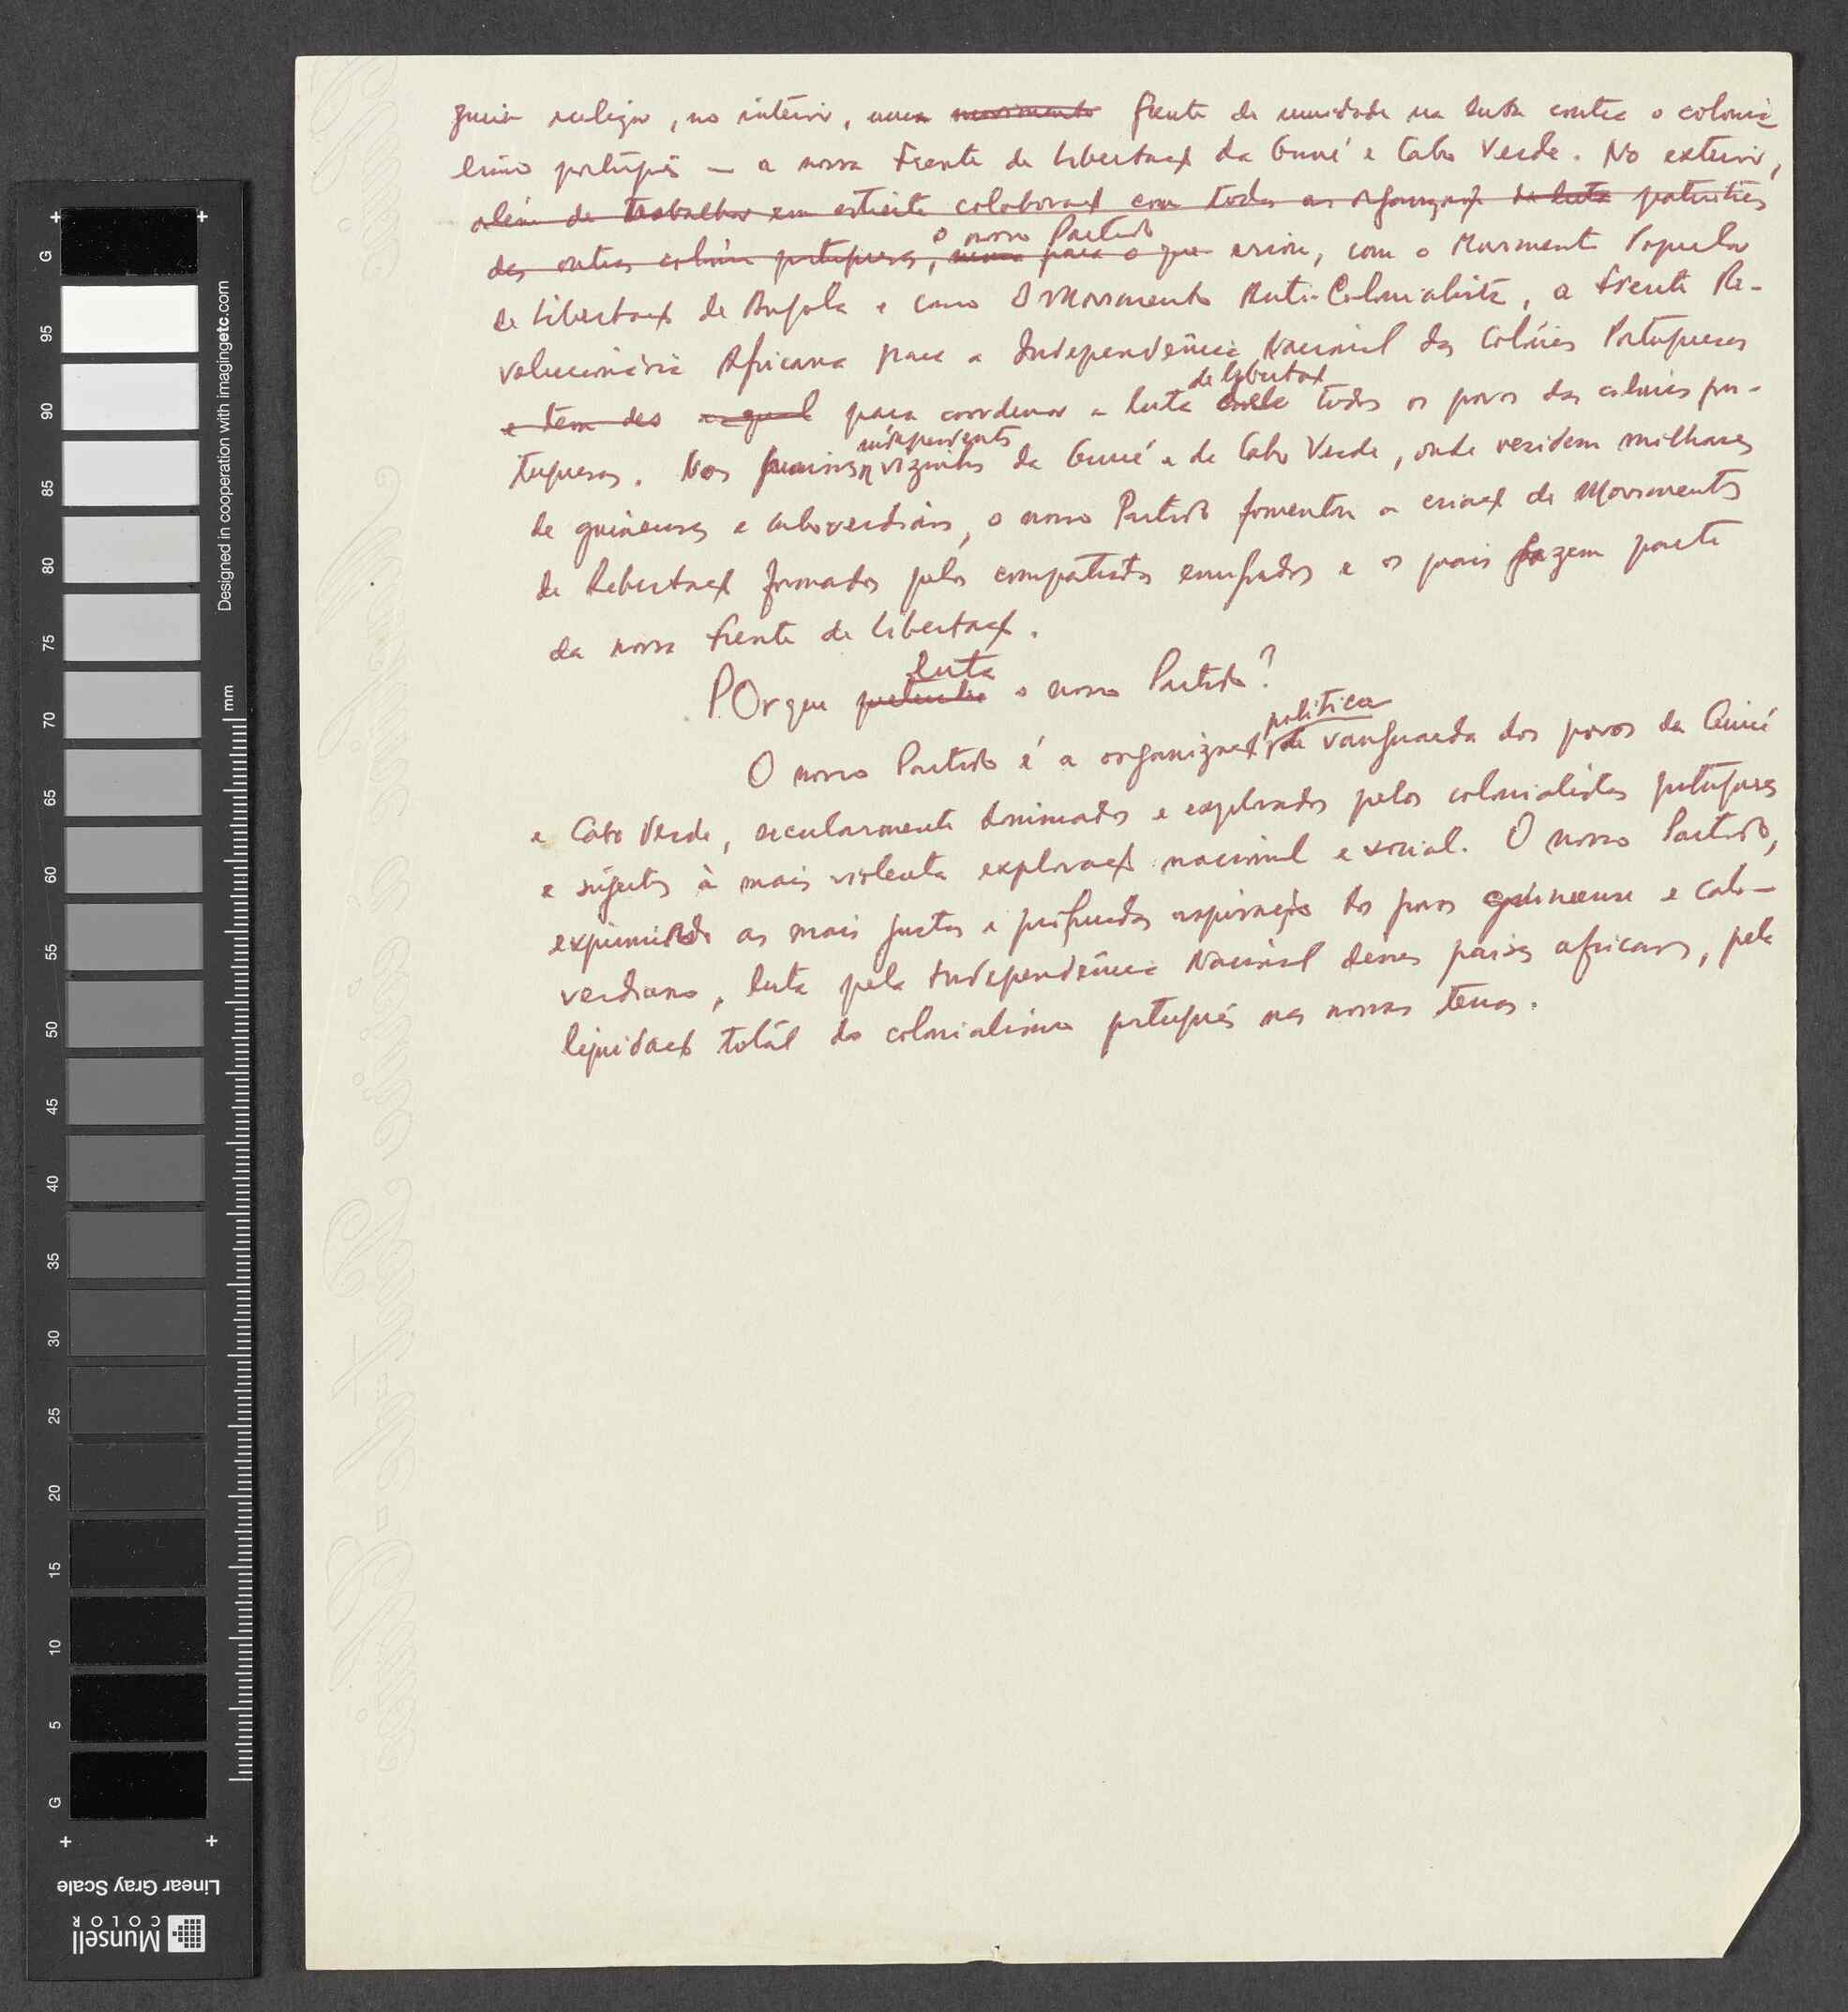 realizar, no interior, uma movimento frente de unidade na luta contra o colonia
lismo português — a nossa Frente de Libertação da Guiné e Cabo Verde. No exterior,
além de trabalhar em estreita colaboração com todas as organizações de luta patrióticas
o nosso Partido
das outras colónias portuguesas, para o que criou, com o Movimento Popular
de Libertação de Angola e com o Movimento Anti-Colonialista, a Frente Re-
volucionária Africana para a Independência Nacional das Colónias Portuguesas
de libertação
e tem a qual para coordenar a luta de todos os povos das colónias por-
independentes
tuguesas. Nos países vizinhos da Guiné e de Cabo Verde, onde residem milhares
de guineenses e caboverdianos, o nosso Partido fomentou a criação de Movimentos
de Libertação formados pelos compatriotas emigrados e os quais fazem parte
da nossa Frente de Libertação.
luta
Porque o nosso Partido?
política
O nosso Partido é a organização de vanguarda dos povos da Guiné
e Cabo Verde, secularmente dominados e explorados pelos colonialistas portugueses
e sujeitos à mais violenta exploração nacional e social. O nosso Partido,
exprimindo as mais justas e profundas aspirações dos povos guineense e cabo-
verdiano, luta pela Independência Nacional desses países africanos, pela
liquidação total do colonialismo português nas nossas terras.
G
95
90
85
80
75
70
65
60
55
50
45
40
35
30
25
20
15
10
5
G
mm
Designed in cooperation with imagingetc.com
Linear Gray Scale
Munsell
COLOR